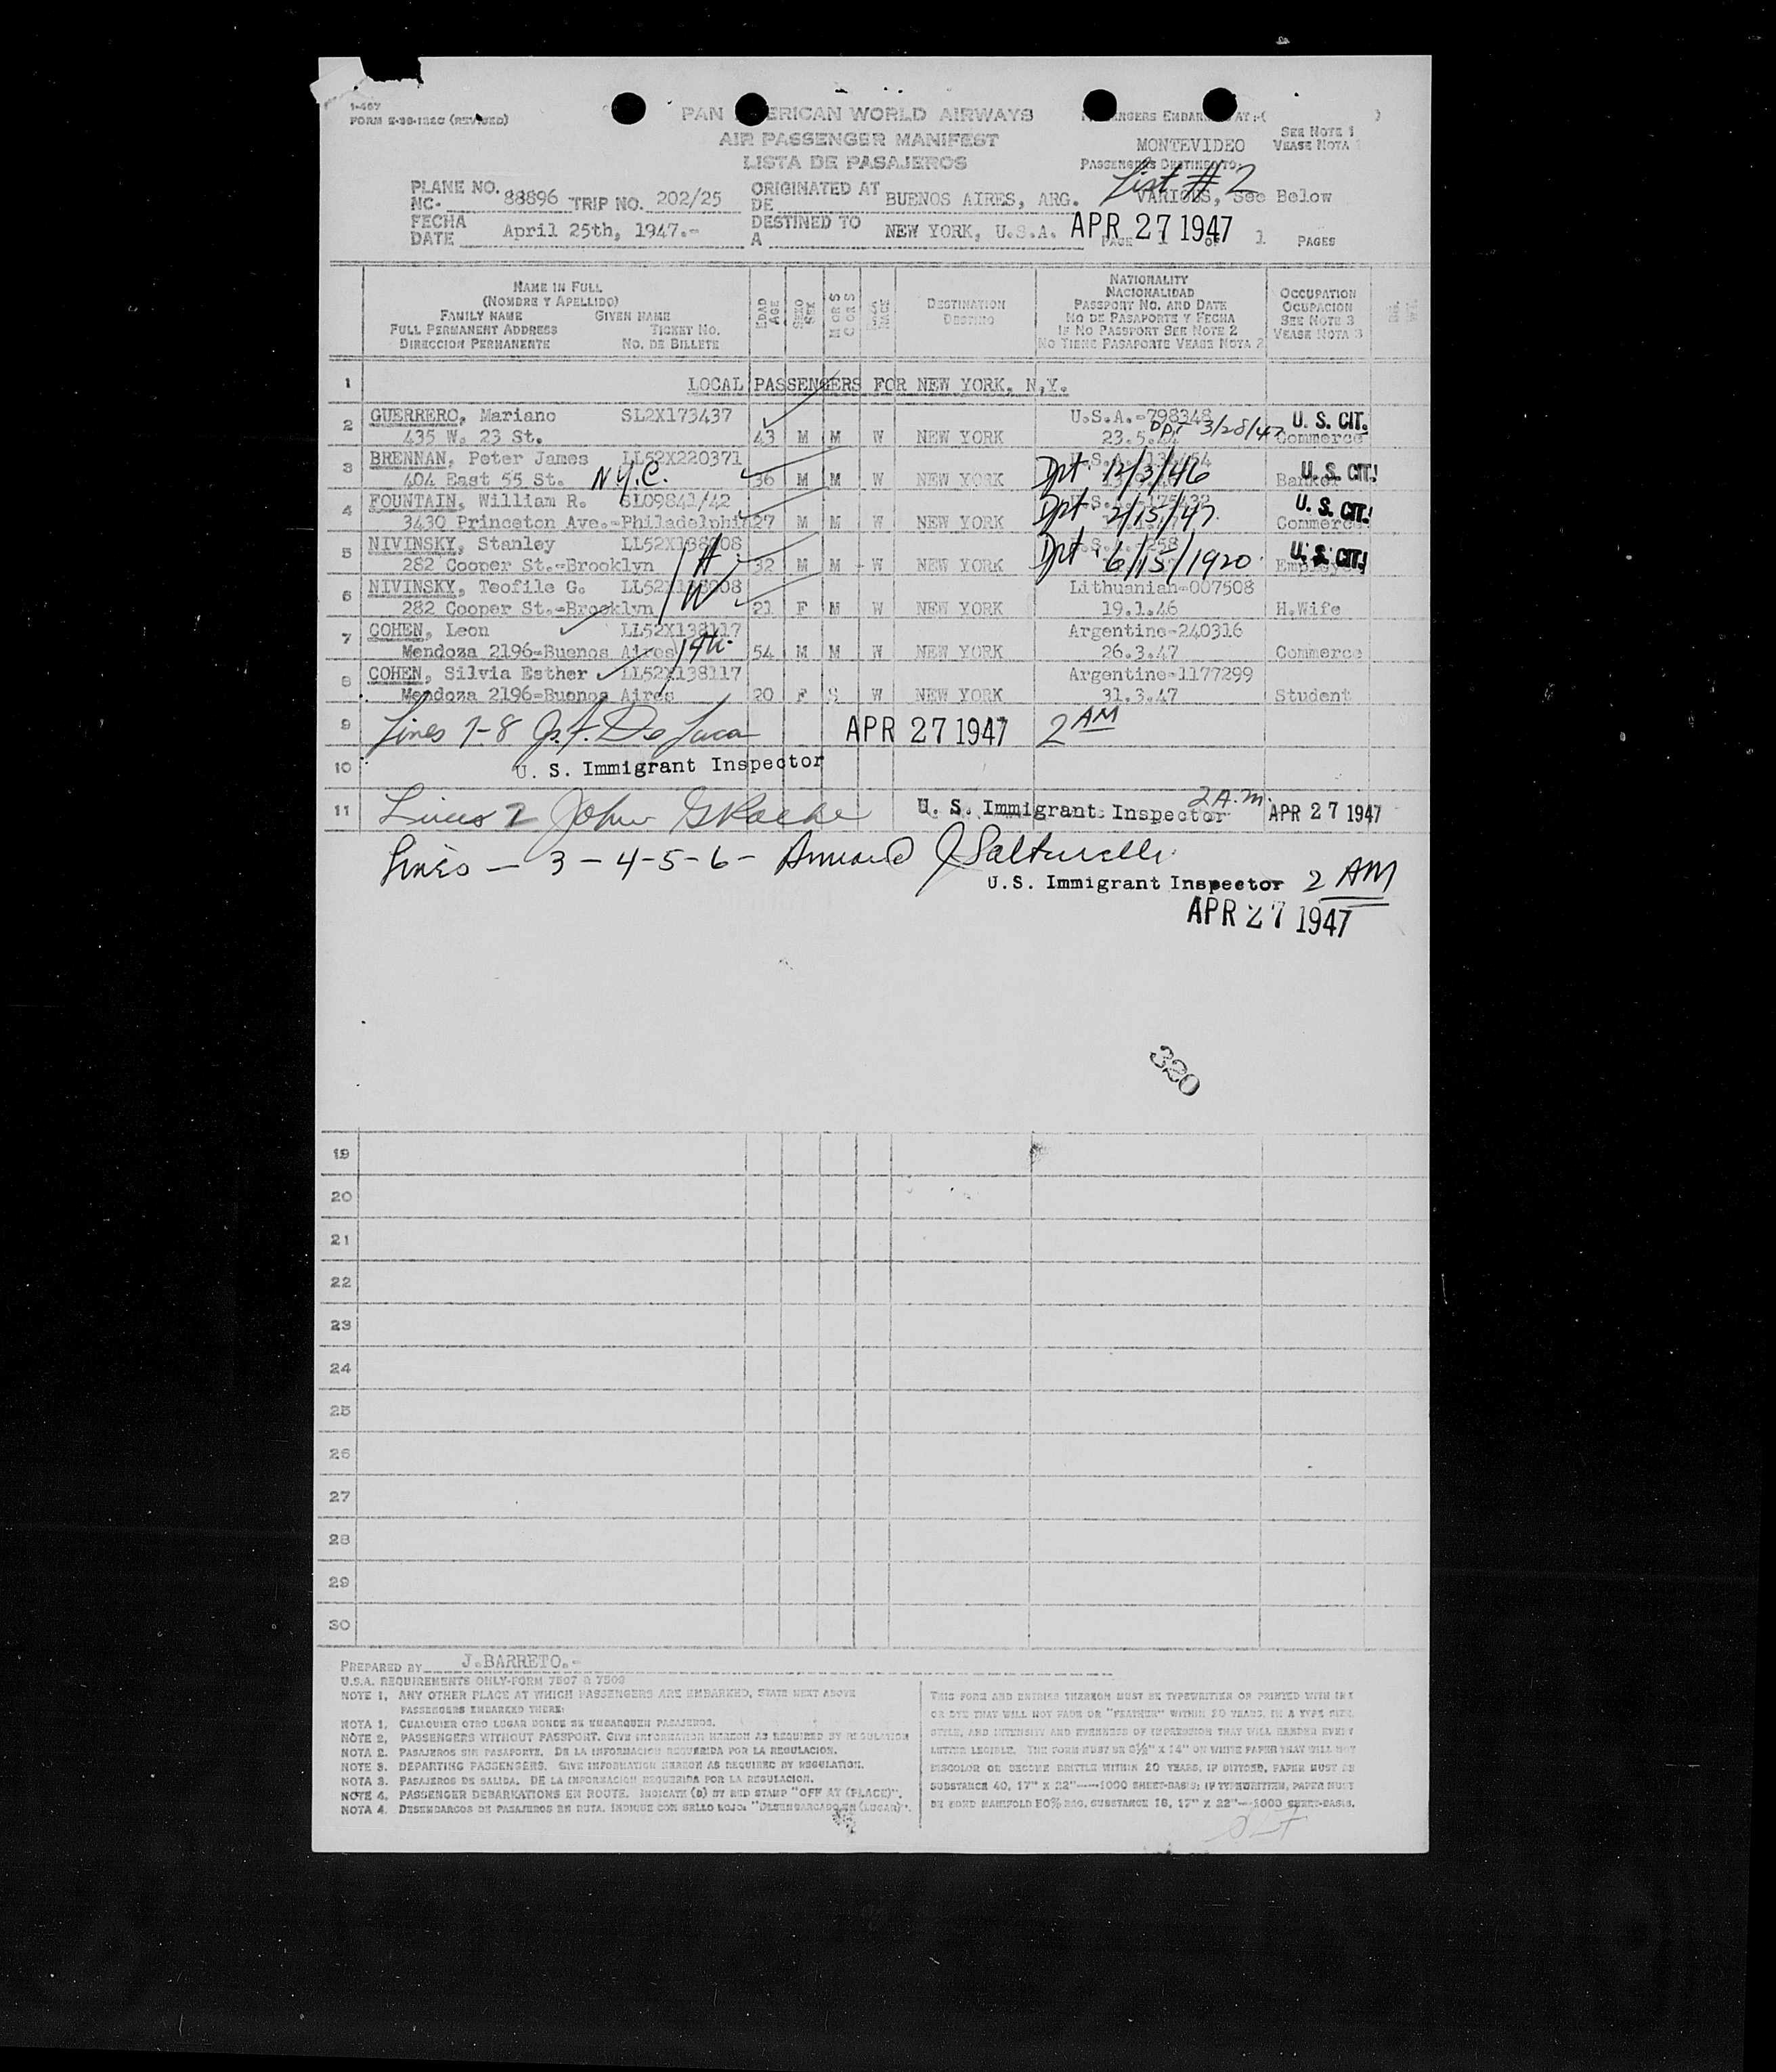 I-467
FORM E-36-182C (REVISED)
PAN AMERICAN WORLD AIRWAYS
AIR PASSENGER MANIFEST
LISTA DE PASAJEROS
PASSENGERS EMBARKED AT:-( )
MONTEVIDEO
SEE NOTE 1
VEASE NOTA 1
PASSENGERS DESTINED TO:
List # 2
VARIOUS, See Below
PLANE NO. NC- 88896 TRIP NO. 202/25
ORIGINATED AT DE BUENOS AIRES, ARG.
FECHA DATE April 25th, 1947.-
DESTINED TO A NEW YORK, U.S.A.
APR 27 1947
PAGE 1 OF 1 PAGES
NAME IN FULL
(NOMBRE Y APELLIDO)
FAMILY NAME GIVEN NAME
FULL PERMANENT ADDRESS TICKET NO.
DIRECCION PERMANENTE NO. DE BILLETE
EDAD AGE
SEXO SEX
M OR S
C OR S
RAZA RACE
DESTINATION
DESTINO
NATIONALITY
NACIONALIDAD
PASSPORT NO. AND DATE
NO DE PASAPORTE Y FECHA
IF NO PASSPORT SEE NOTE 2
NO TIENE PASAPORTE VEASE NOTA 2
OCCUPATION
OCUPACION
SEE NOTE 3
VEASE NOTA 3
1 LOCAL PASSENGERS FOR NEW YORK, N.Y.
2 GUERRERO, Mariano SL2X173437 U.S.A.-798348 U. S. CIT.
435 W. 23 St. 43 M M W NEW YORK 23.5. Dpt 3/28/47 Commerce
3 BRENNAN, Peter James LL52X220371 U. S. CIT!
404 East 55 St. N.Y.C. 36 M M W NEW YORK Dpt. 12/3/46 Banker
4 FOUNTAIN, William R. SL09841/42 U. S. CIT!
3430 Princeton Ave.-Philadelphia 27 M M W NEW YORK Dpt. 2/15/47. Commerce
5 NIVINSKY, Stanley LL52X138008 U. S. CIT!
282 Cooper St.-Brooklyn H 32 M M W NEW YORK Dpt. 6/15/1920.
6 NIVINSKY, Teofile G. Lithuanian-007508
282 Cooper St.-Brooklyn W 21 F M W NEW YORK 19.1.46 H.Wife
7 COHEN, Leon LL52X138117 Argentine-240316
Mendoza 2196-Buenos Aires 54 M M W NEW YORK 26.3.47 Commerce
8 COHEN, Silvia Esther LL52X138117 Argentine-1177299
Mendoza 2196-Buenos Aires 20 F S W NEW YORK 31.3.47 Student
9 Lines 7-8 De Luca APR 27 1947 2 AM
10 U. S. Immigrant Inspector
11 Lines 2 John G Roche U. S. Immigrant Inspector 2 A.m. APR 27 1947
Lines - 3 - 4 - 5 - 6 -
U.S. Immigrant Inspector 2 AM
APR 27 1947
320
19
20
21
22
23
24
25
26
27
28
29
30
PREPARED BY J.BARRETO.-
U.S.A. REQUIREMENTS ONLY-FORM 7507 & 7509
NOTE 1, ANY OTHER PLACE AT WHICH PASSENGERS ARE EMBARKED, STATE NEXT ABOVE
PASSENGERS EMBARKED THERE:
NOTA 1, CUALQUIER OTRO LUGAR DONDE SE EMBARQUEN PASAJEROS.
NOTE 2, PASSENGERS WITHOUT PASSPORT. GIVE INFORMATION HEREON AS REQUIRED BY REGULATION
NOTA 2. PASAJEROS SIN PASAPORTE. DE LA INFORMACION REQUERIDA POR LA REGULACION.
NOTE 3. DEPARTING PASSENGERS. GIVE INFORMATION HEREON AS REQUIRED BY REGULATION.
NOTA 3. PASAJEROS DE SALIDA. DE LA INFORMACION REQUERIDA POR LA REGULACION.
NOTE 4, PASSENGER DEBARKATIONS EN ROUTE. INDICATE (D) BY RED STAMP "OFF AT (PLACE)".
NOTA 4. DESEMBARCOS DE PASAJEROS EN RUTA. INDIQUE CON SELLO ROJO: "DESEMBARCADO EN (LUGAR)".
THIS FORM AND ENTRIES THEREON MUST BE TYPEWRITTEN OR PRINTED WITH INK
OR DYE THAT WILL NOT FADE OR "FEATHER" WITHIN 20 YEARS, IN A TYPE SIZE,
STYLE, AND INTENSITY AND EVENNESS OF IMPRESSION THAT WILL RENDER EVERY
LETTER LEGIBLE. THE FORM MUST BE 8½" X 14" ON WHITE PAPER THAT WILL NOT
DISCOLOR OR BECOME BRITTLE WITHIN 20 YEARS. IF DITTOED, PAPER MUST BE
SUBSTANCE 40, 17" X 22"—1000 SHEET-BASIS; IF TYPEWRITTEN, PAPER MUST
BE BOND MANIFOLD 50% RAG. SUBSTANCE 18, 17" X 22"—1000 SHEET-BASIS.